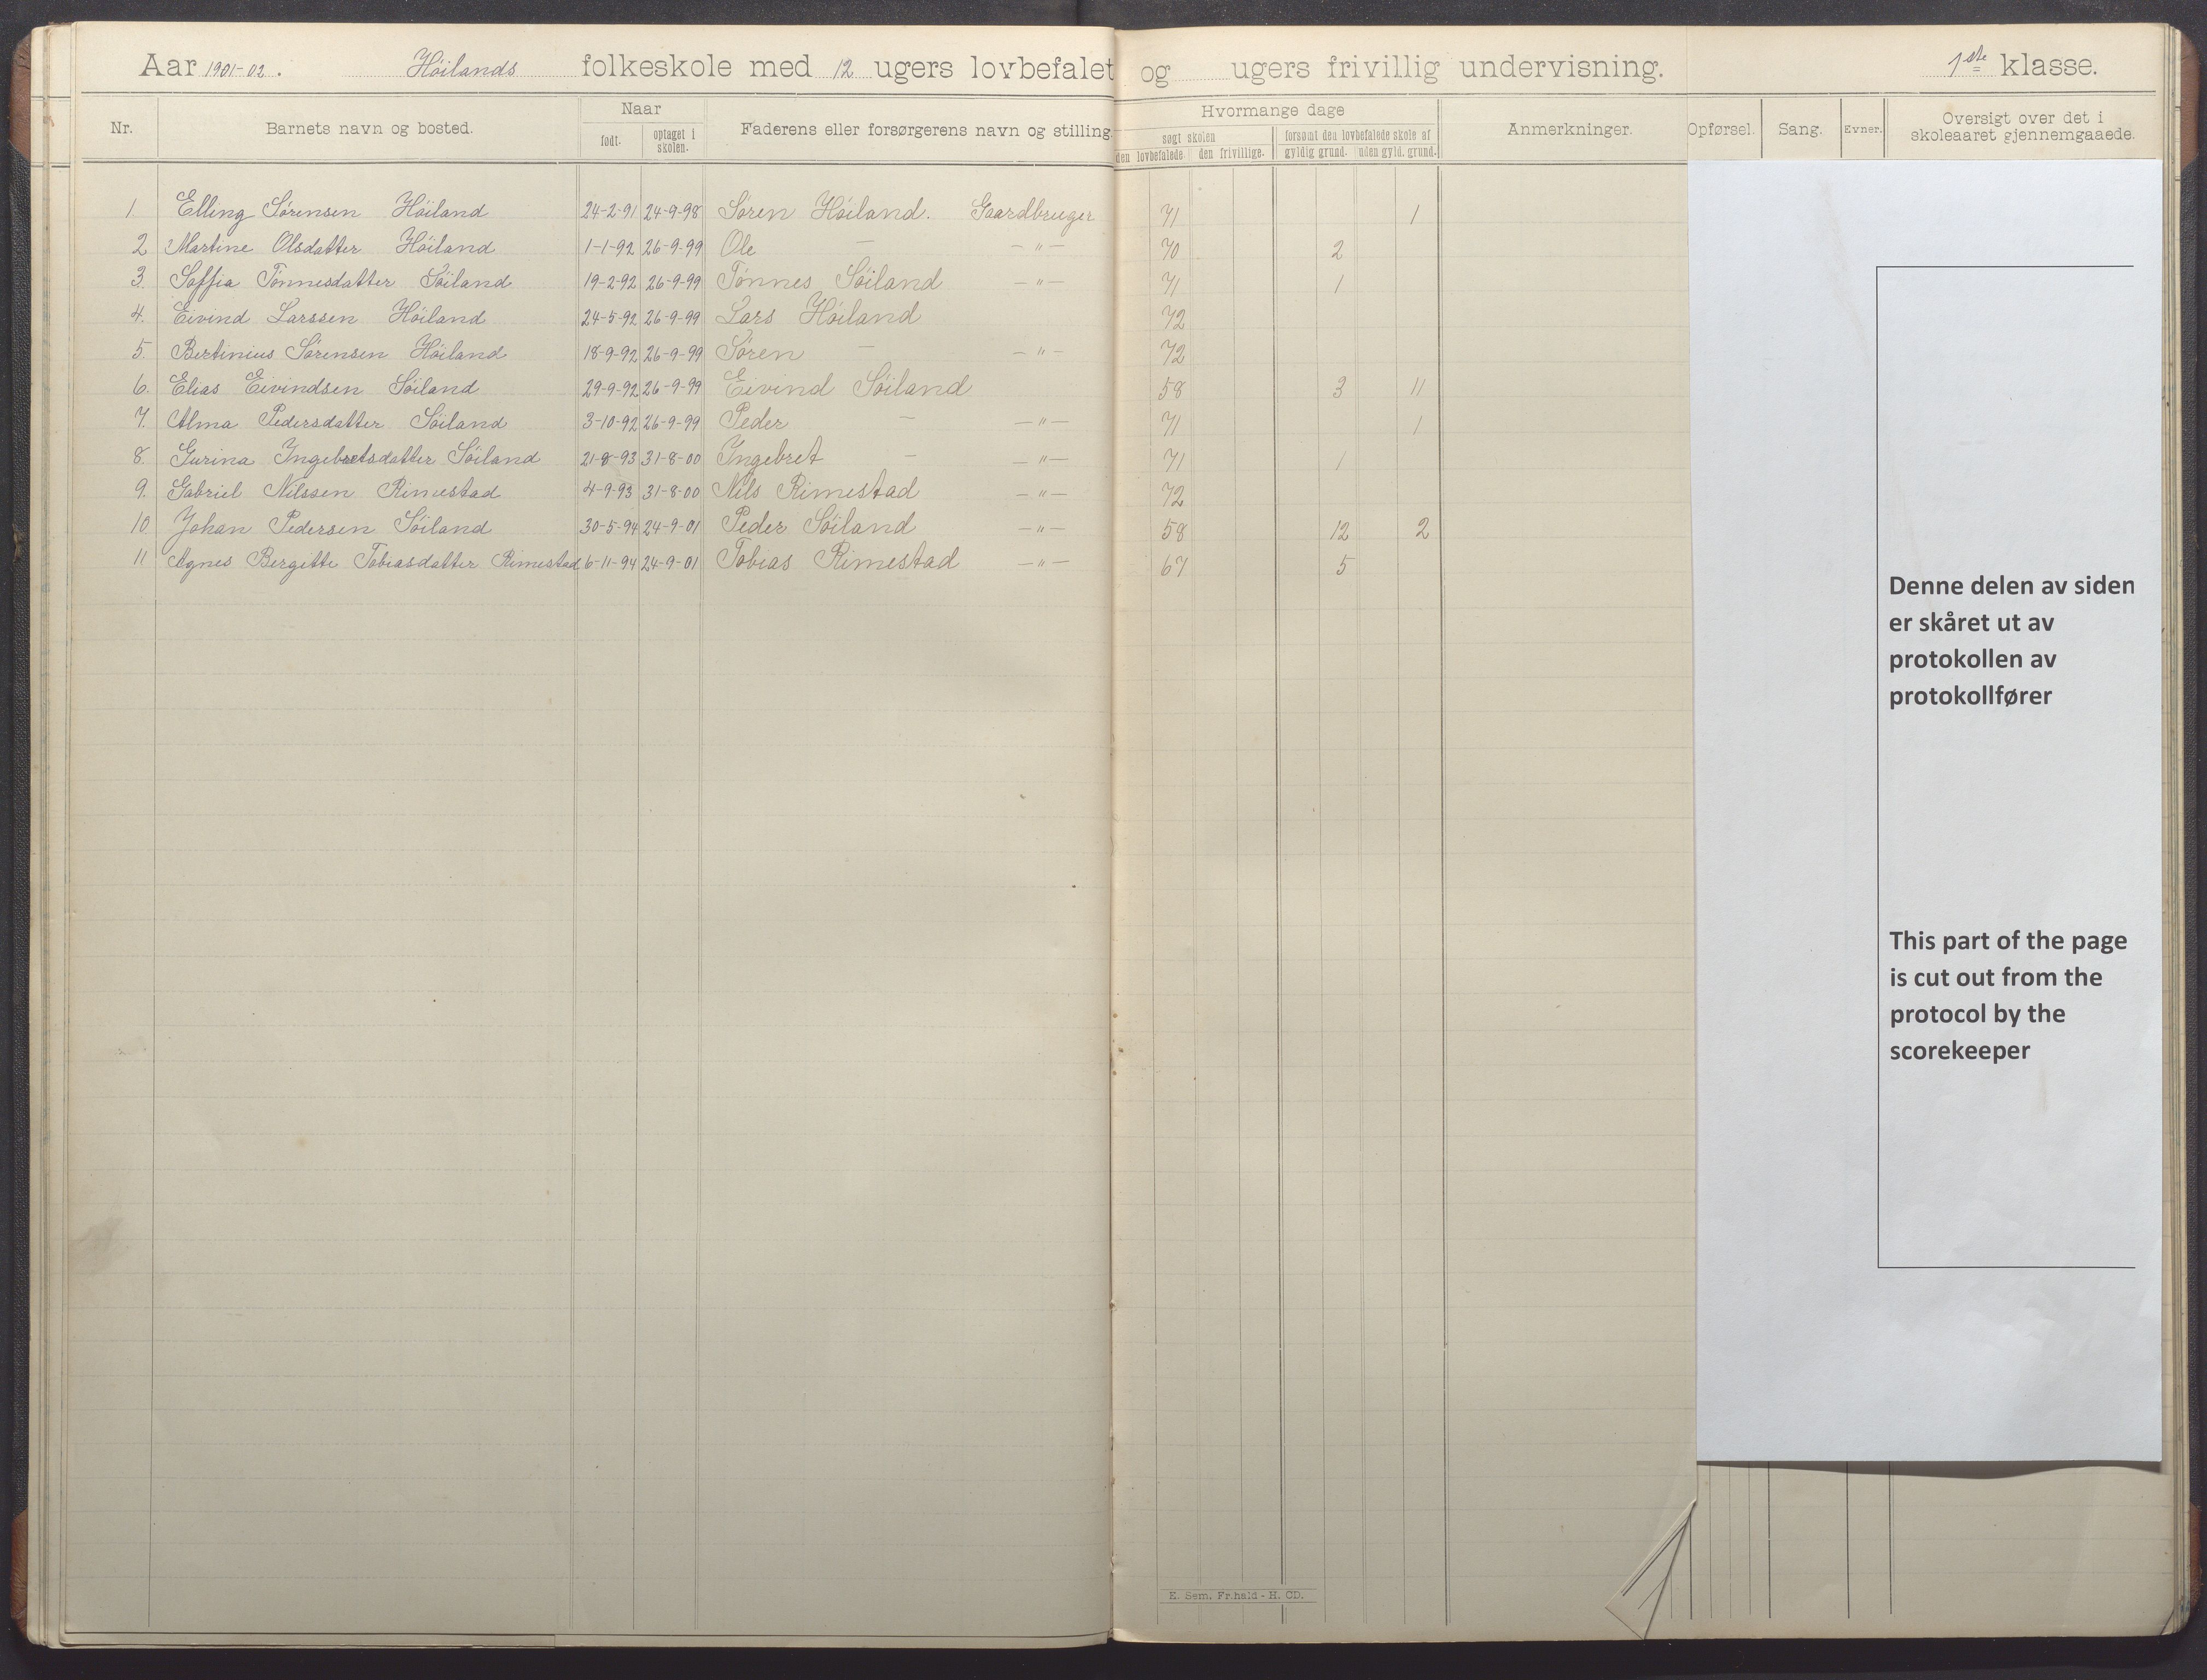 Aar 1901-02. Höilands folkeskole med 12 ugers lovbefalet og ugers frivillig undervisning. 1ste klasse.
Nr. Barnets navn og bosted. Naar født. optaget i skolen. Faderens eller forsørgerens navn og stilling. Hvormange dage søgt skolen den lovbefalede den frivillige. forsømt den lovbefalede skole af gyldig grund. uden gyld. grund. Anmerkninger. Opførsel. Sang. Evner. Oversigt over det i skoleaaret gjennemgaaede.
1. Elling Sörensen Höiland 24-2-91 24-9-98 Sören Höiland. Gaardbruger 71 1
2 Martine Olsdatter Höiland 1-1-92 26-9-99 Ole — — " — 70 2
3. Soffia Tönnesdatter Söiland 19-2-92 26-9-99 Tönnes Söiland — " — 71 1
4. Eivind Larssen Höiland 24-5-92 26-9-99 Lars Höiland 72
5. Bertinius Sörensen Höiland 18-9-92 26-9-99 Sören — — " — 72
6. Elias Eivindsen Söiland 29-9-92 26-9-99 Eivind Söiland 58 3 11
7. Alma Pedersdatter Söiland 3-10-92 26-9-99 Peder — — " — 71 1
8. Gurina Ingebretsdatter Söiland 21-8-93 31-8-00 Ingebret — — " — 71 1
9. Gabriel Nilssen Rimestad 4-9-93 31-8-00 Nils Rimestad — " — 72
10 Johan Pedersen Söiland 30-5-94 24-9-01 Peder Söiland — " — 58 12 2
11 Agnes Bergitte Tobiasdatter Rimestad 6-11-94 24-9-01 Tobias Rimestad — " — 67 5
Denne delen av siden
er skåret ut av
protokollen av
protokollfører
This part of the page
is cut out from the
protocol by the
scorekeeper
E. Sem. Fr.hald - H. CD.